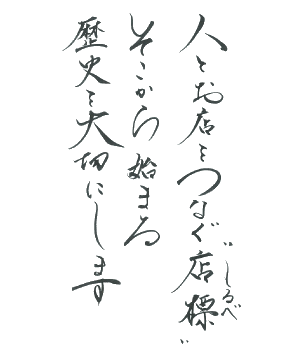 人とお店をつなぐ"店標"しるべ
そこから始まる
歴史を大切にします